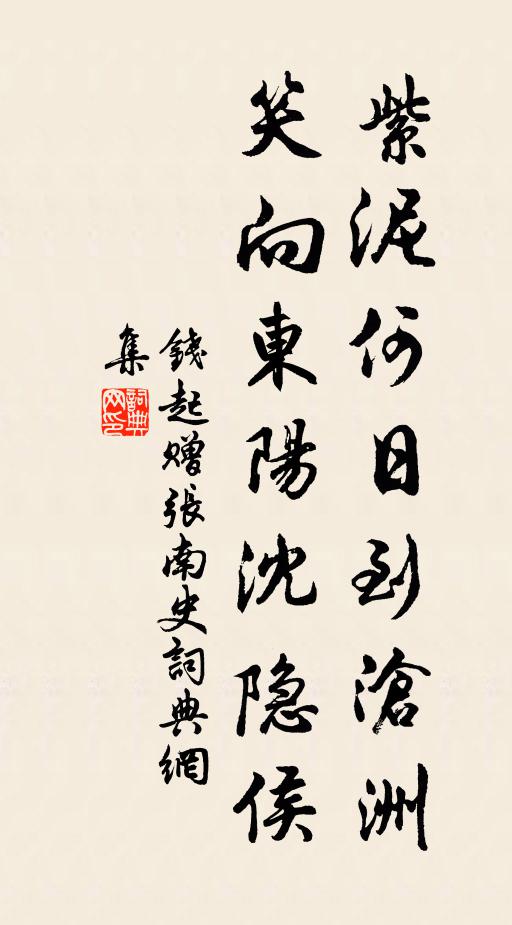 紫泥何日到滄洲
笑向東陽沈隐侯
錢起贈張南史詞典網
集
詞典網印